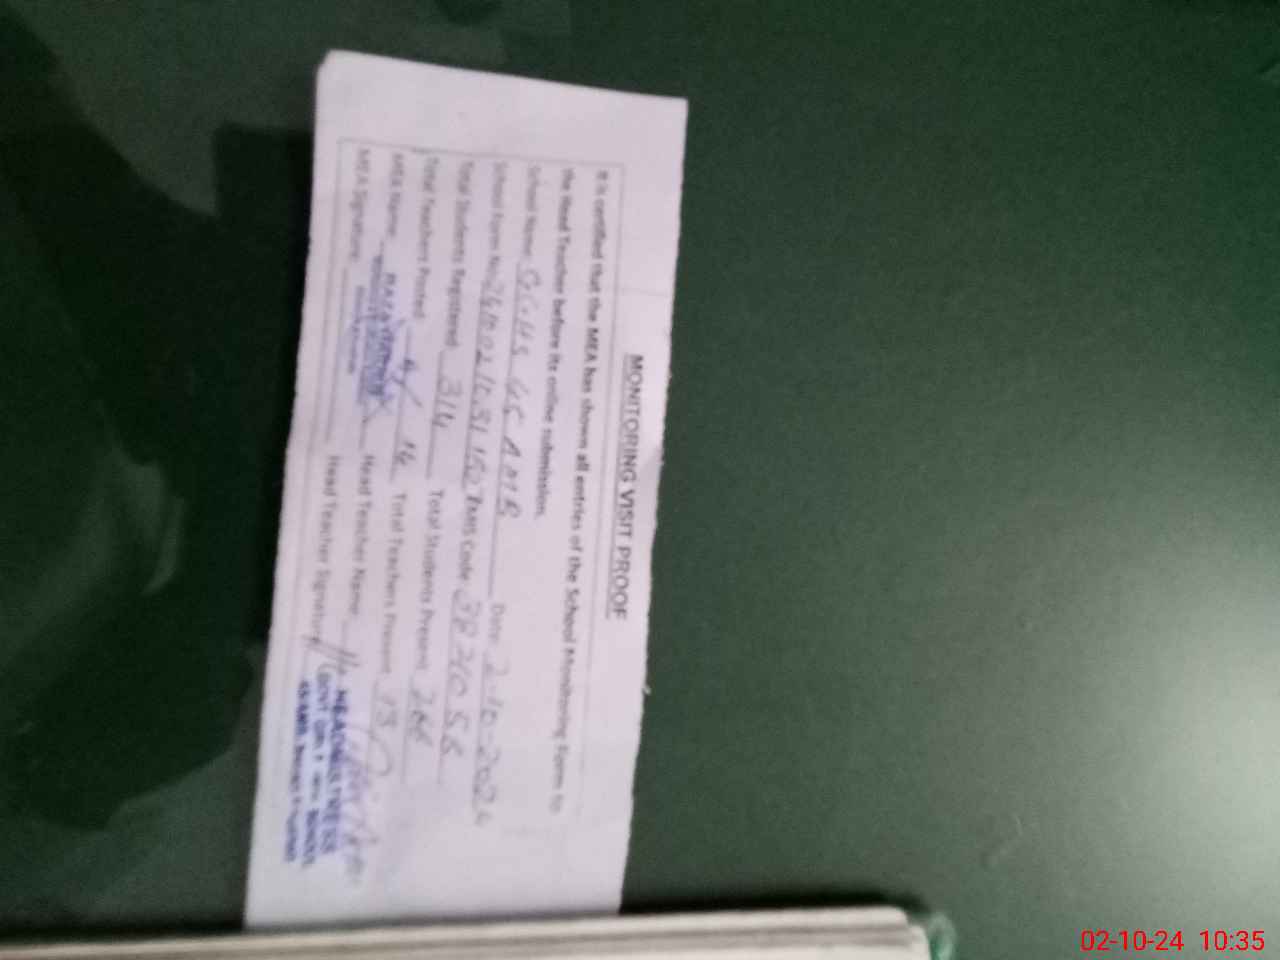 MONITORING VISIT PROOF
It is certified that the MEA has shown all entries of the School Monitoring Form to
the Head Teacher before its online submission.
School Name GGHS 45 A M B Date 2-10-2024
School Form No. EMIS Code
Total Students Registered 314 Total Students Present 266
Total Teachers Posted 14 Total Teachers Present 13
MEA Name: Head Teacher Name:
MEA Signature: Head Teacher Signature
HEADMISTRESS
GOVT GIRLS HIGH SCHOOL
02-10-24 10:35